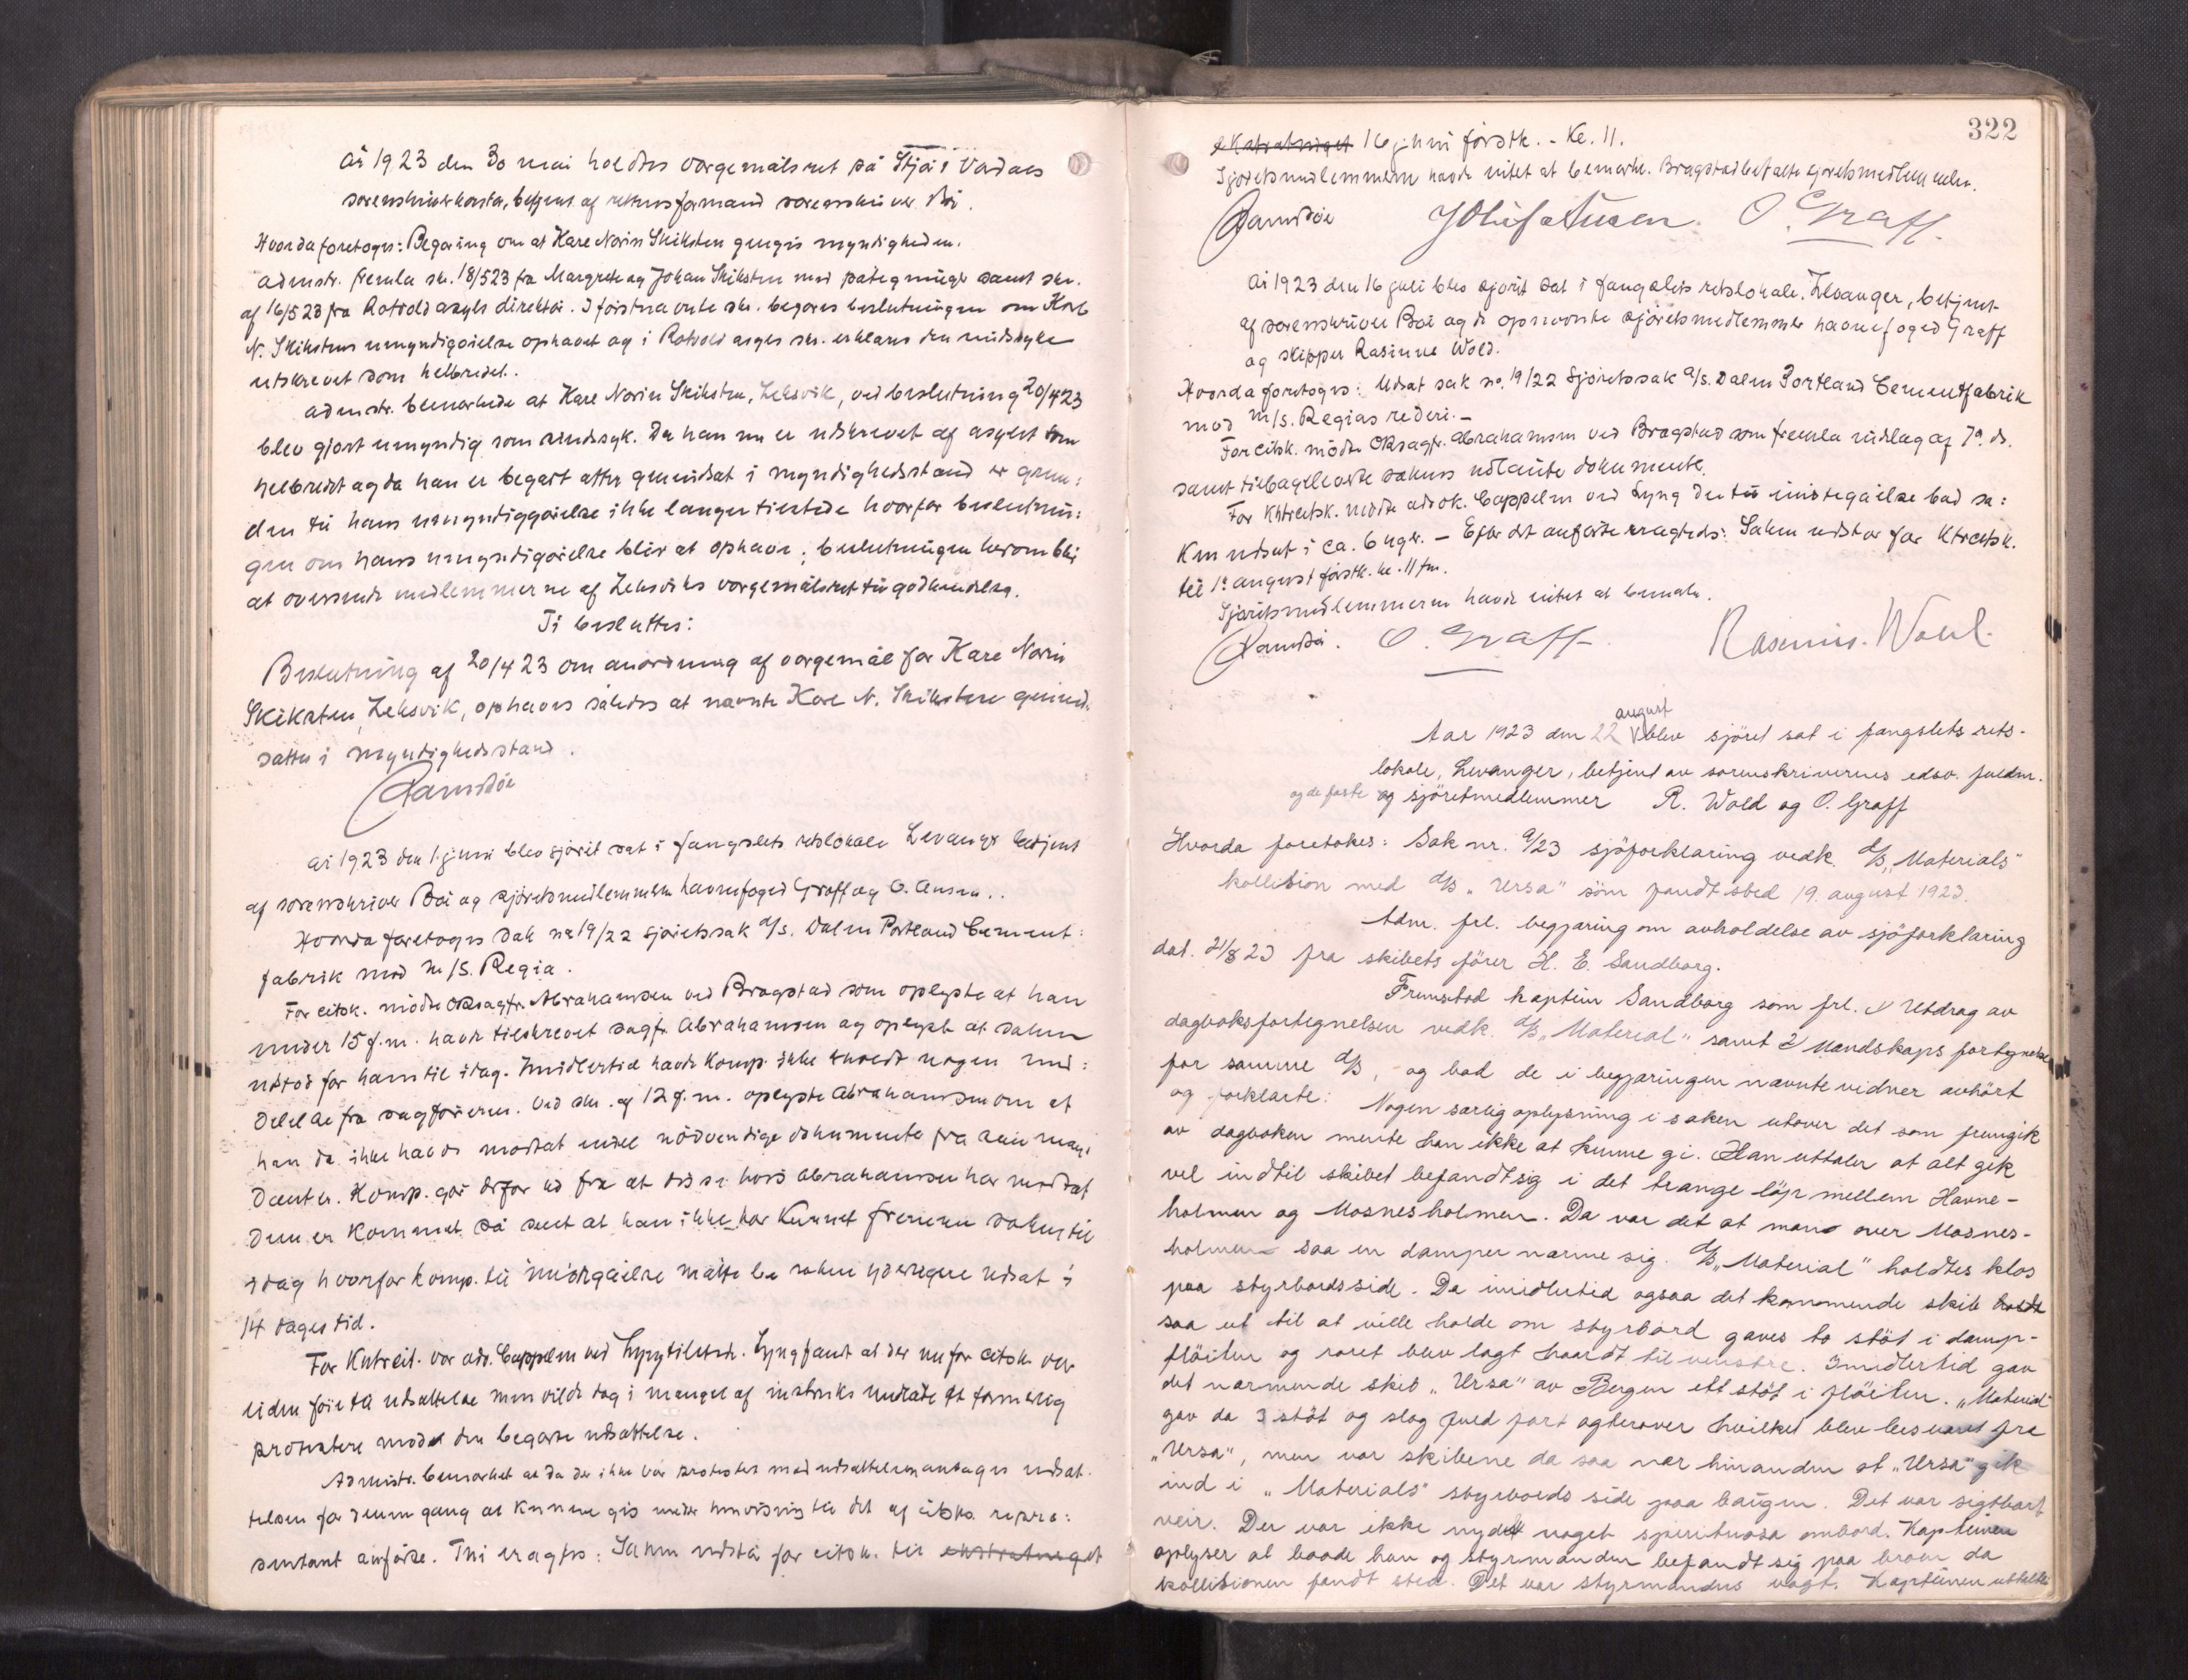 År 1923 den 30 mai holdtes værgemålsret på Stjør & Værdals
sorenskriverkontor, betjent af rettens formand sorenskriver Bøe.
Hvorda foretoges: Begæring om at Kare Norin Skiksten gjengis myndigheden.
Admstr. fremla skr. 18/523 fra Margrete og Johan Skiksten med påtegninger samt skr.
af 16/523 fra Rotvold asyls direktør. I førstnævnte skr. begæres beslutningen om Kare
N. Skikstens umyndiggjørelse ophævet og i Rotvold asyls skr. erklæres den sindssyke
utskrevet som helbredet.
Admstr. bemærkede at Kare Norin Skiksten, Leksvik, ved beslutning 20/423
blev gjort umyndig som sindssyk. Da han nu er utskrevet af asylet som
helbredet og da han er begært atter gjenindsat i myndighedsstand er grun:
den til hans umyndiggjørelse ikke længer tilstede hvorfor beslutnin:
gen om hans umyndiggjørelse blir at ophæve; beslutningen herom blir
at oversende medlemmerne af Leksviks værgemålsret til godkjendelse.
Ti besluttes:
Beslutning af 20/4 23 om anordning af værgemål for Kare Norin
Skiksten, Leksvik, ophæves således at nævnte Kare N. Skiksten gjenind-
sættes i myndighedsstand.
År 1923 den 1 juni blev sjøret sat i fængslets retslokale Levanger betjent
af sorenskriver Bøe og sjøretsmedlemmerne havnefoged Graff og O. Aunsen..
Hvorda foretoges sak no 19/22 sjøretssak A/S. Dalen Portland Cement:
fabrik mod M/S. Regia.
For citsk. mødte Orsagfr. Abrahamsen ved Bragstad som oplyste at han
under 15 f.m. havde tilskrevet sagfr. Abrahamsen og oplyst at saken
utstod for ham til idag. Imidlertid havde komp. ikke mottat nogen med:
delelse fra sagføreren. Ved skr. af 12 f.m. oplyste Abrahamsen om at
han da ikke havde mottat endel nødvendige dokumenter fra sin man:
dant. Komp. går derfor ud fra at disse hvis Abrahamsen har mottat
dem er kommet så sent at han ikke har kunnet fremme saken til
idag hvorfor komp. til imøtegåelse måtte be saken yderligere udsat i
14 dages tid.
For Kntrcit. var adv. Cappelen ved Lyng tilstede. Lyng fandt at der nu for citsk. var
liden føie til utsættelse men vilde dog i mangel af instruks undlate at formelig
protestere mod den begærte utsættelse.
Admstr. bemærket at da der ikke var protester mod utsættelsen antages utsæt-
telsen for denne gang at kunne gis under henvisning til det af citsks repræ:
sentant anførte. Thi eragtes: Saken utstår for citsk. til ekstratinget
322
ekstratinget 16 juni førstk. - Kl. 11.
Sjøretsmedlemmerne havde intet at bemærke. Bragstad betalte sjøretsmedlemmerne.
O. Graff.
År 1923 den 16 juli blev sjøret sat i fængslets retslokale, Levanger, betjent
af sorenskriver Bøe og de opnævnte sjøretsmedlemmer havnefoged Graff
og skipper Rasmus Wold.
Hvorda foretoges: Utsat sak no. 19/22 Sjøretssak A/S. Dalen Portland Cementfabrik
mod M/S. Regias rederi. -
For citsk. mødte Orsagfr. Abrahamsen ved Bragstad som fremla indlæg af 7de ds.
samt tilbageleverte sakens utlånte dokumenter.
For Kntrcitsk. mødte advok. Cappelen ved Lyng der til imøtegåelse bad sa:
ken utsat i ca. 6 uger. - Efter det anførte eragtedes: Saken utstår for Ktrcitsk.
til 1ste august førstk. kl. 11 fm.
Sjøretsmedlemmerne havde intet at bemærke.
O. Graff Rasmus. Wold.
Aar 1923 den 22 august blev sjöret sat i fængslets rets-
lokale, Levanger, betjent av sorenskriverens edsv. fuldm.
og de faste og sjöretmedlemmer R. Wold og O. Graff
Hvorda foretokes: Sak nr. 9/23 sjöforklaring vedk. D/S „Materials"
kollision med D/S „Ursa" som fandt sted 19. august 1923.
Adm. frl. begjæring om avholdelse av sjöforklaring
dat. 21/8 23 fra skibets förer H. E. Sandborg.
Fremstod kaptein Sandborg som frl. 1/ Utdrag av
dagboksfortegnelsen vedk. D/S „Material" samt 2/ Mandskaps fortegnelse
for samme D/S, og bad de i begjæringen nævnte vidner avhört
og forklarte: Nogen særlig oplysning i saken utover det som fremgik
av dagboken mente han ikke at kunne gi. Han uttaler at alt gik
vel indtil skibet befandt sig i det trange löp mellem Havne-
holmen og Mosnesholmen. Da var det at man over Mosnes-
holmen saa en damper nærme sig. D/S „Material" holdtes klos
paa styrbordsside. Da imidlertid ogsaa det kommende skib holdt
saa ut til at ville holde om styrbord gaves to stöt i damp-
flöiten og roret blev lagt haardt til venstre. Imidlertid gav
det nærmende skib „Ursa" av Bergen ett stöt i flöiten. „Material"
gav da 3 stöt og slog fuld fart agterover hvilket blev besvaret fra
„Ursa", men var skibene da saa nær hinanden at „Ursa" gik
ind i „Materials" styrbords side paa baugen. Det var sigtbart
veir. Der var ikke nydt noget spirituosa ombord. Kapteinen
oplyser at baade han og styrmanden befandt sig paa broen da
kollisionen fandt sted. Det var styrmandens vagt. Kapteinen uttalte